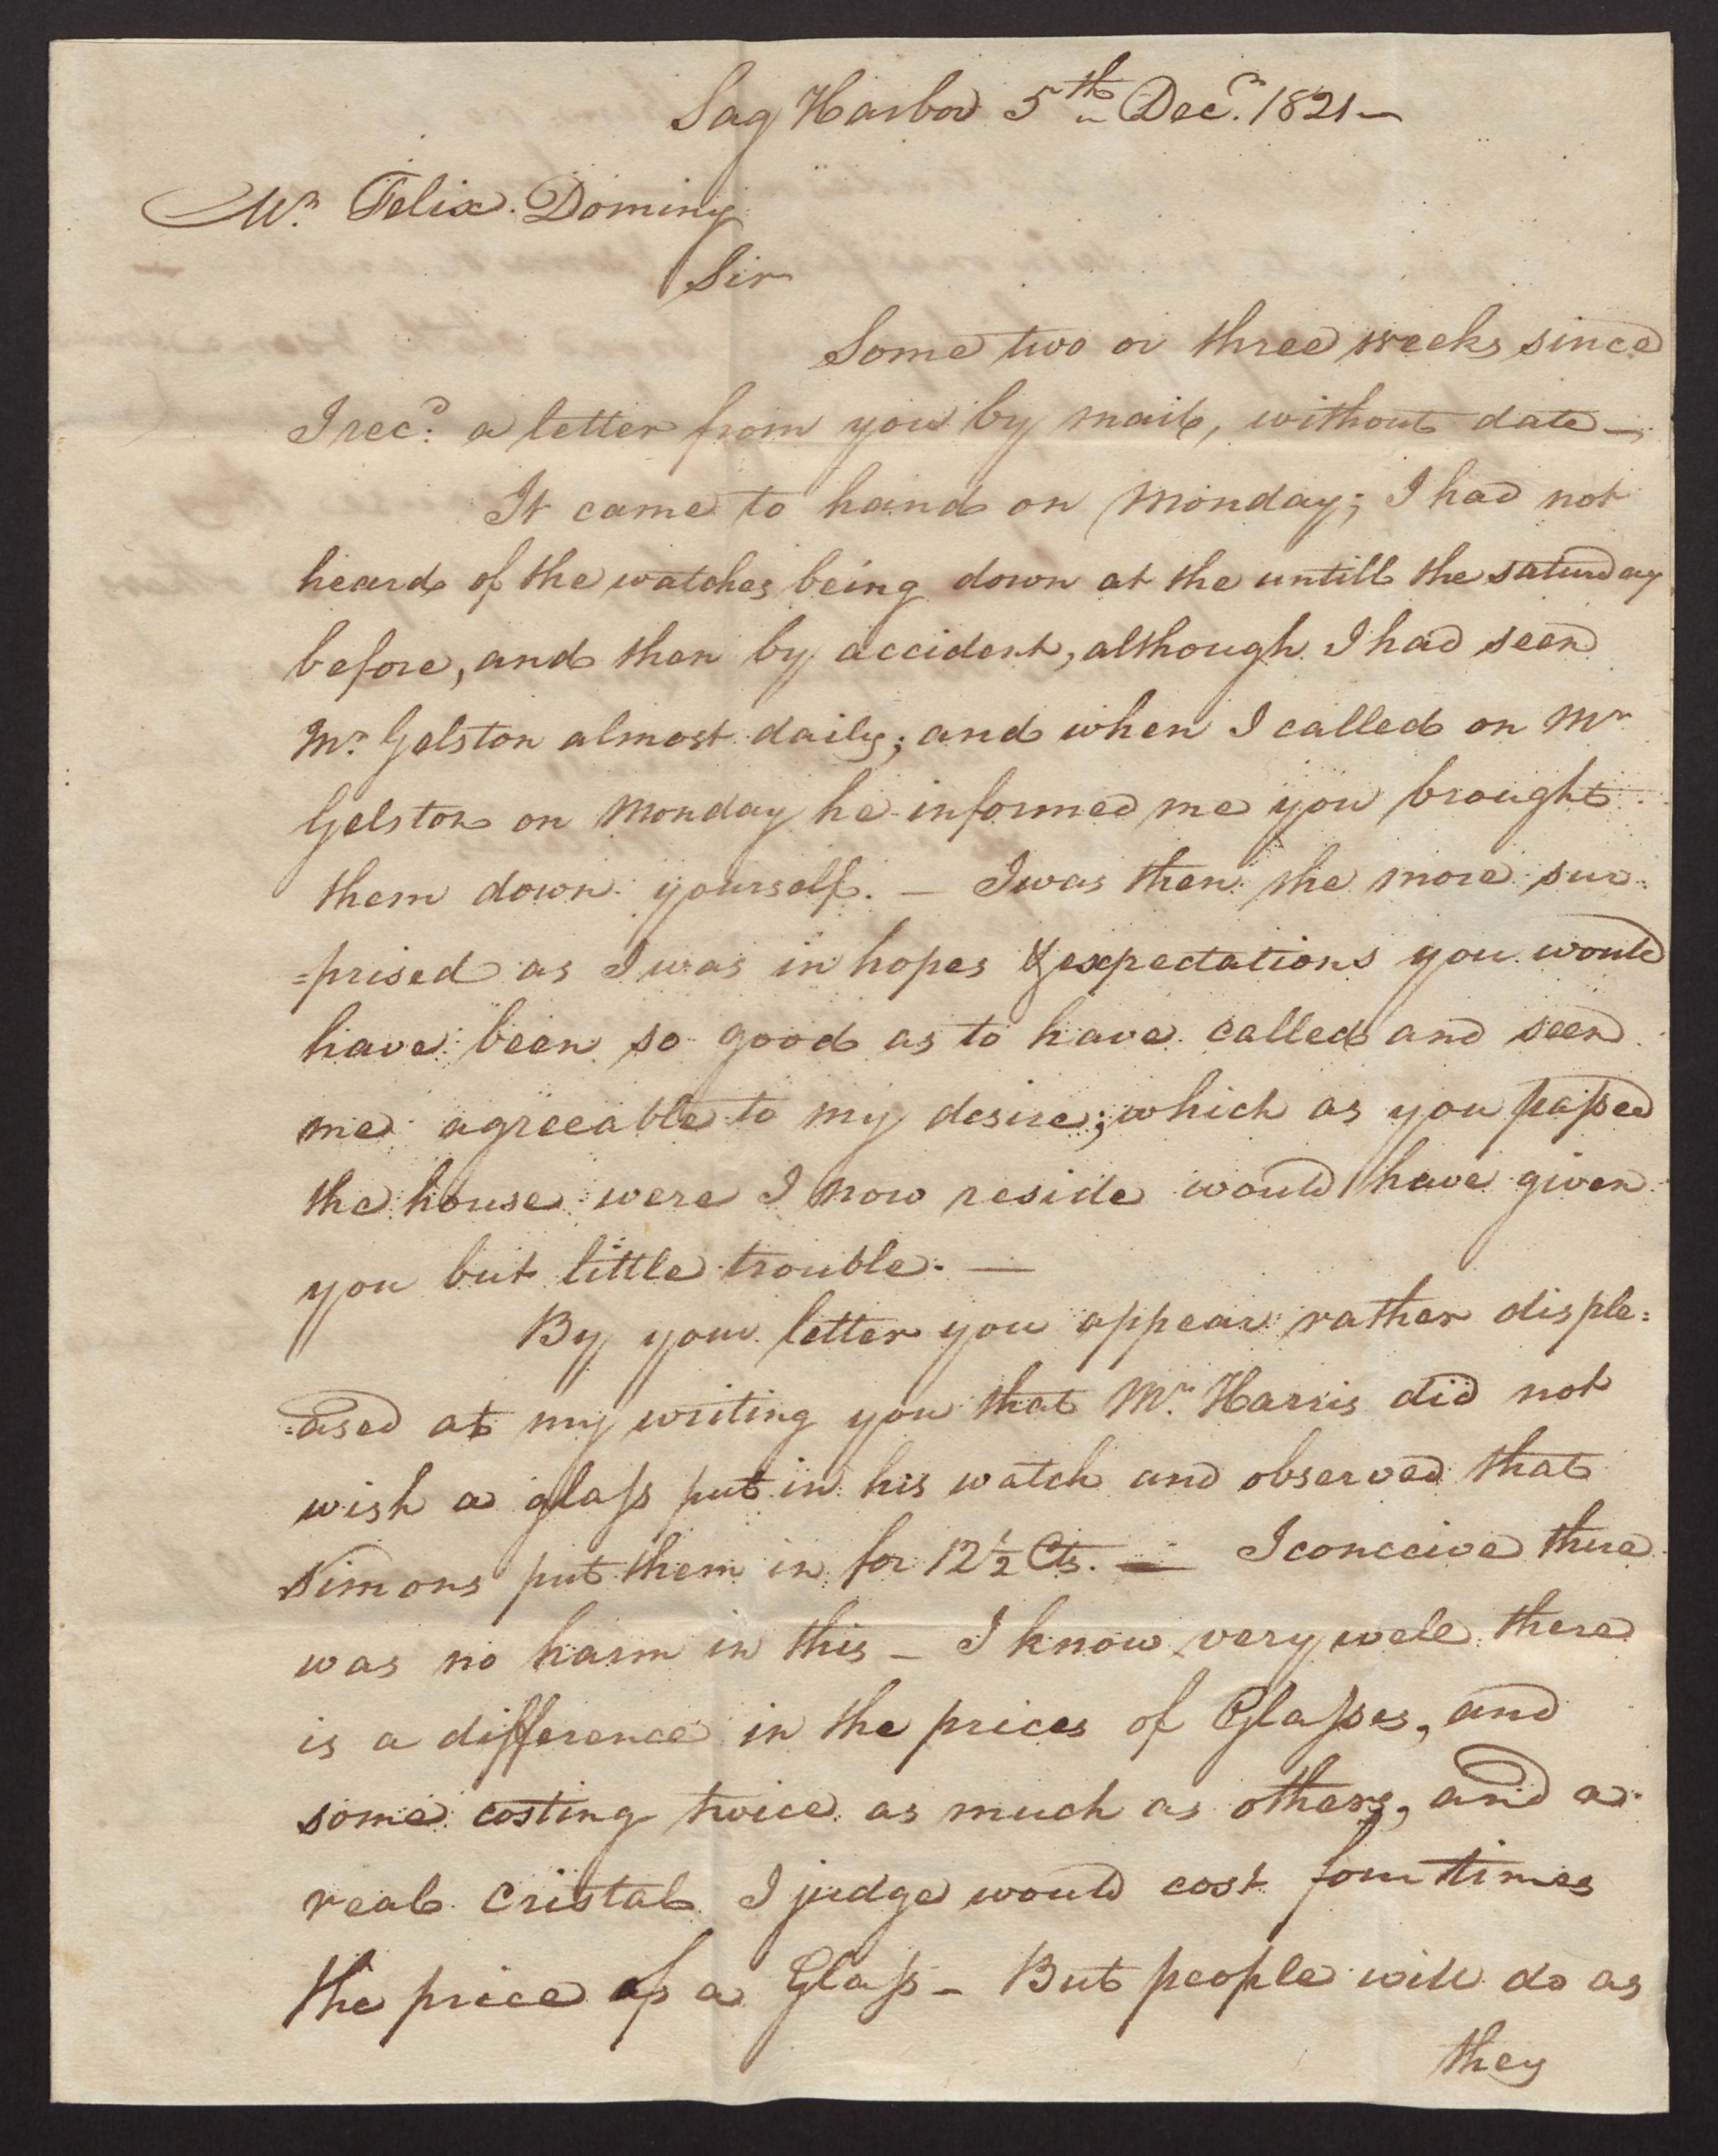 Sag Harbor 5th Decr. 1821 —
Mr. Felix Dominy
Sir
Some two or three weeks since
I recd. a letter from you by mail, without date —
It came to hand on Monday; I had not
heard of the watches being down at the untill the saturday
before, and then by accident, although I had seen
Mr. Gelston almost daily; and when I called on Mr
Gelston on Monday he informed me you brought
them down yourself. — I was then the more sur=
=prised as I was in hopes & expectations you would
have been so good as to have called and seen
me agreeable to my desire; which as you passed
the house were I now reside would have given
you but little trouble. —
By your letter you appear rather disple=
=ased at my writing you that Mr. Harris did not
wish a glass put in his watch and observed that
Simons put them in for 12½ Cts. — I conceive there
was no harm in this — I know very well there
is a difference in the prices of Glasses, and
some costing twice as much as others, and a
real cristal I judge would cost four times
the price of a Glass — But people will do as
they